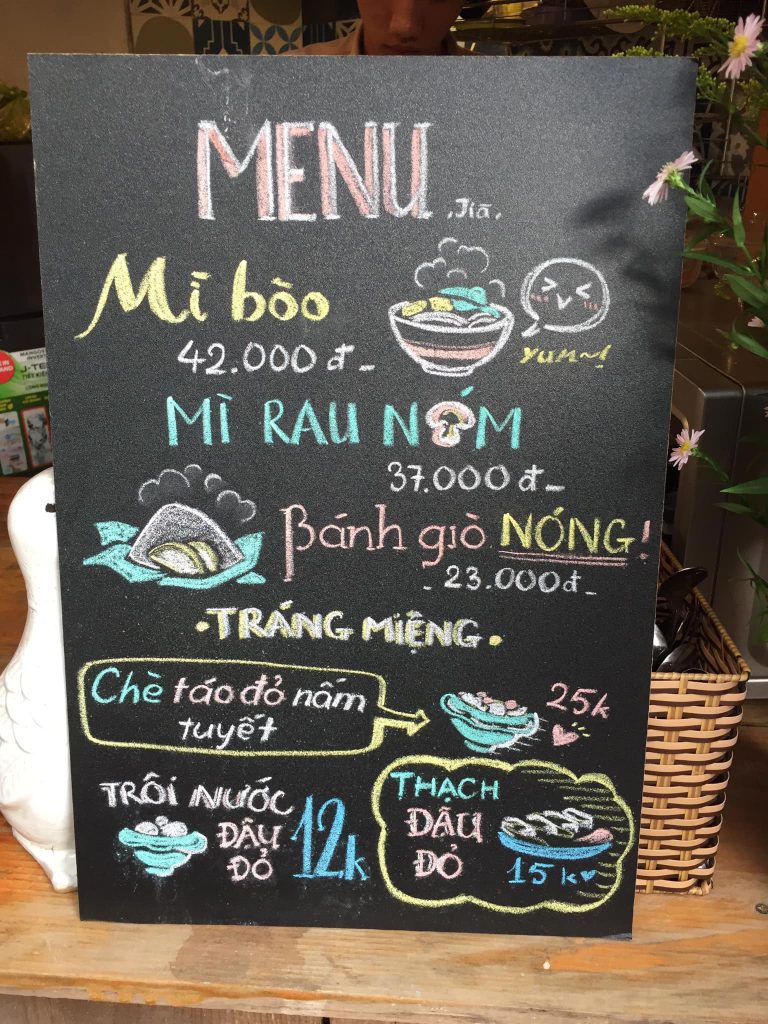 MENU
.Jiā.
Mì bò
42.000 đ_
YUM~!
MÌ RAU NẤM
37.000 đ_
Bánh giò NÓNG!
- 23.000đ-
•TRÁNG MIỆNG•
Chè táo đỏ nấm
tuyết
25k
TRÔI NƯỚC
ĐẬU
ĐỎ
12k
THẠCH
ĐẬU
ĐỎ
15k
J-TE